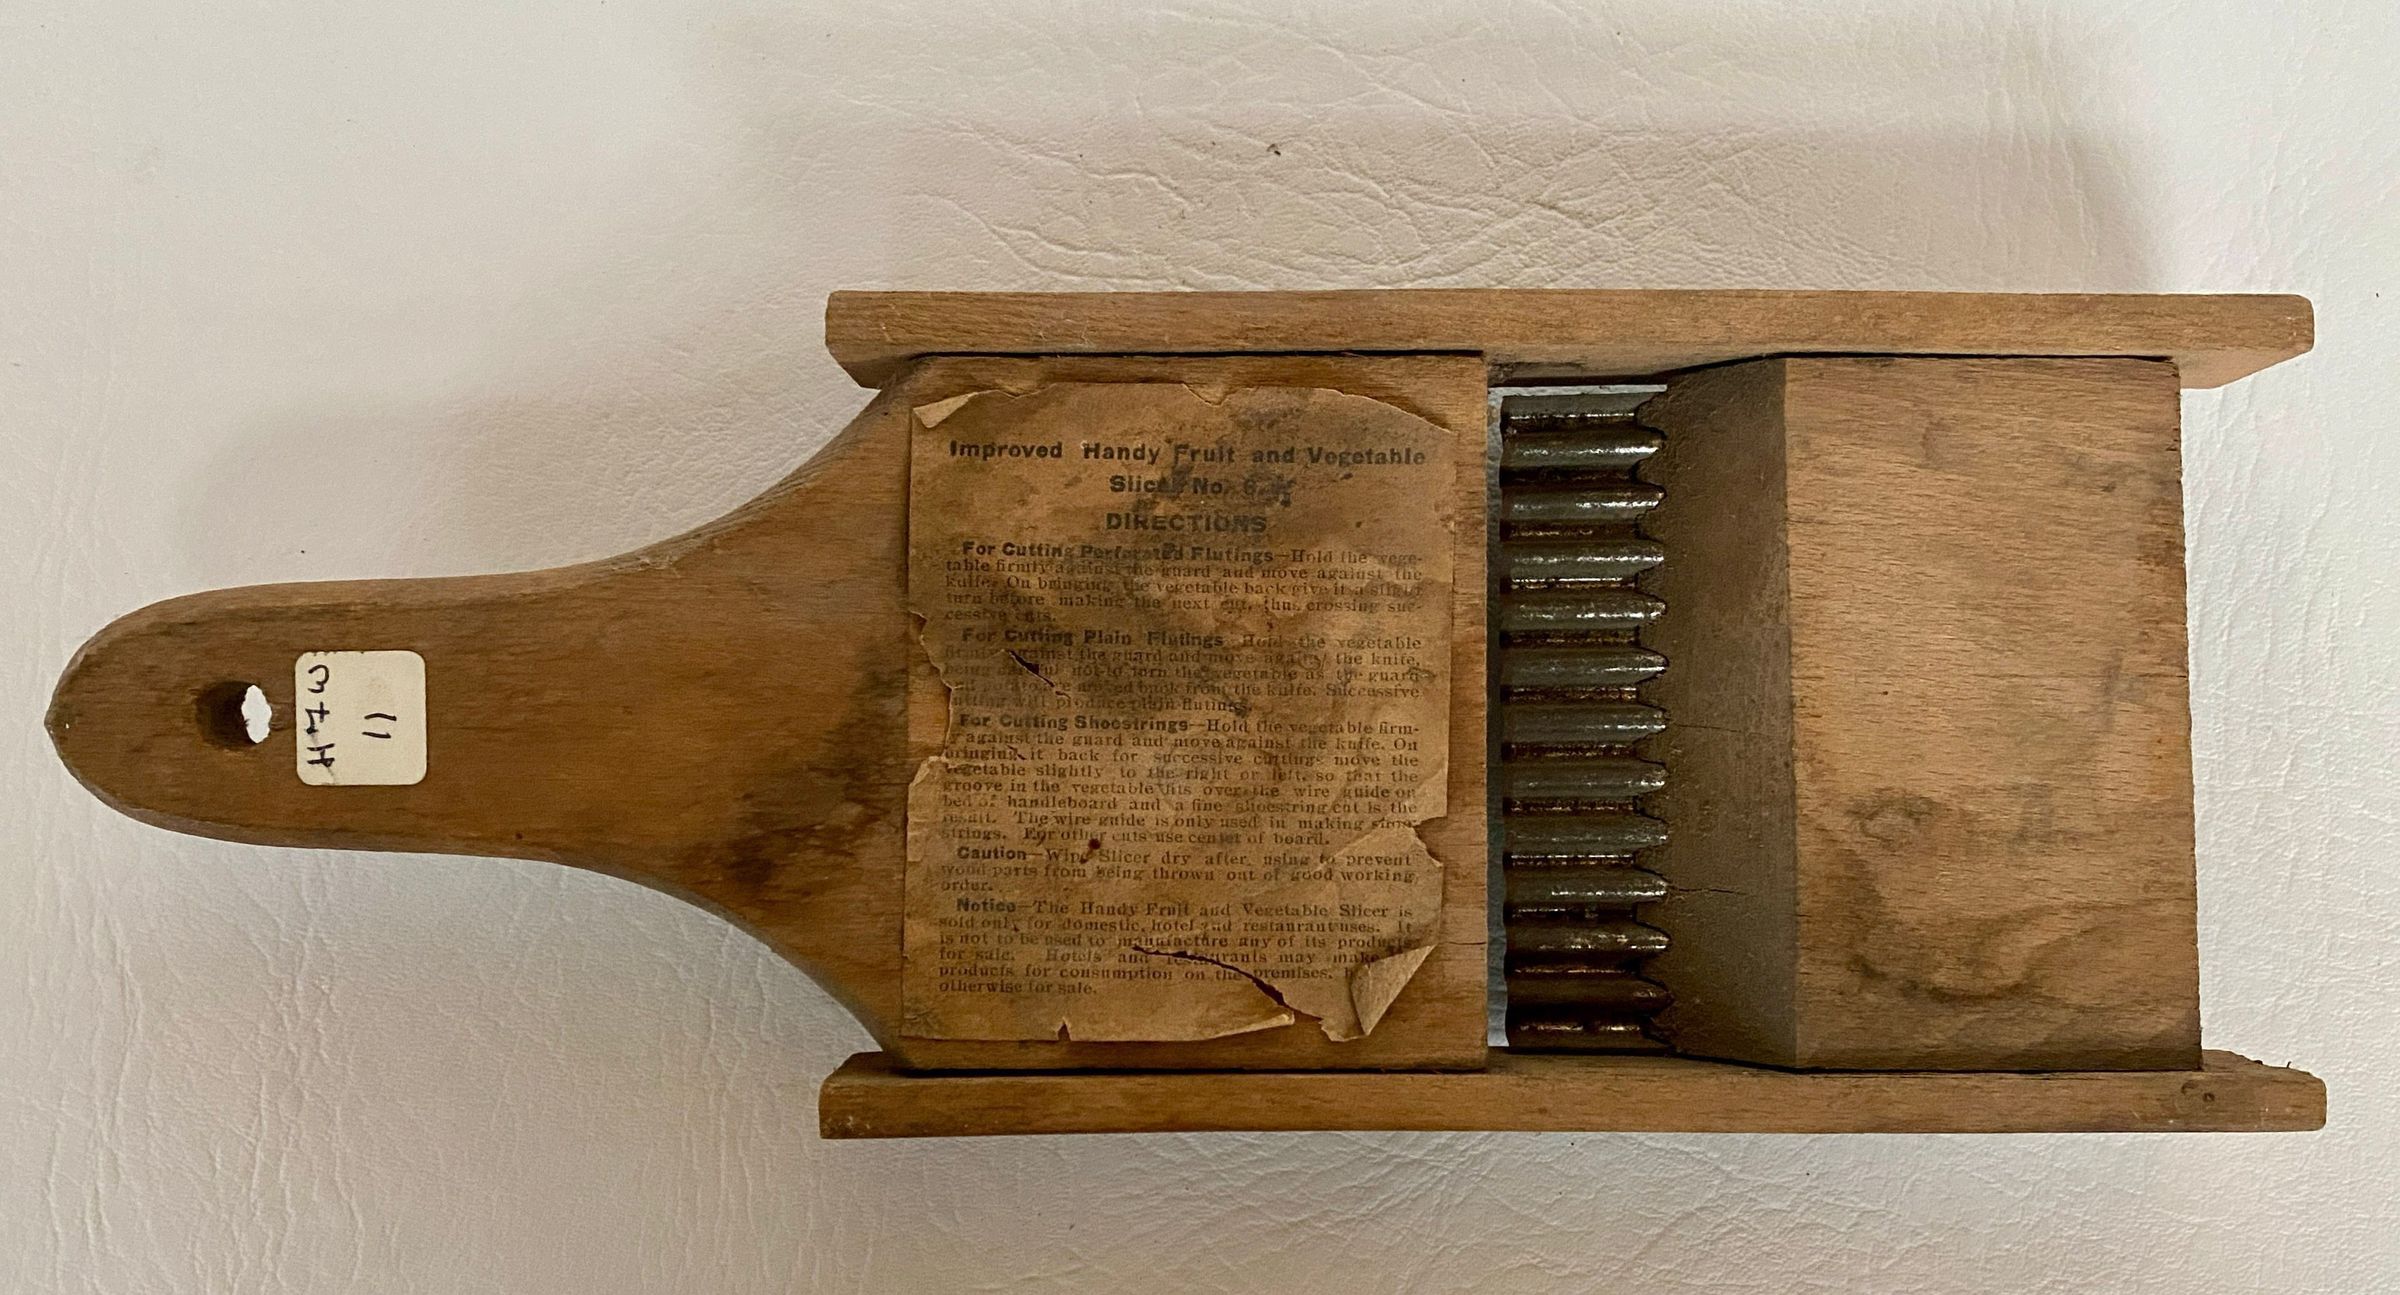 Improved Handy Fruit and Vegetable
Slicer No. 6
DIRECTIONS
For Cutting Perforated Flutings—Hold the vege-
table firmly against the guard and move against the
knife. On bringing the vegetable back give it a slight
turn before making the next cut, thus crossing suc-
cessive cuts.
For Cutting Plain Flutings Hold the vegetable
firmly against the guard and move against the knife,
being careful not to turn the vegetable as the guard
potato are moved back from the knife. Successive
cutting will produce plain flutings.
For Cutting Shoestrings—Hold the vegetable firm-
ly against the guard and move against the knife. On
bringing it back for successive cuttings move the
vegetable slightly to the right or left, so that the
groove in the vegetable fits over the wire guide on
bed of handleboard and a fine shoestring cut is the
result. The wire guide is only used in making shoe-
strings. For other cuts use center of board.
Caution—Wipe Slicer dry after using to prevent
wood parts from being thrown out of good working
order.
Notice—The Handy Fruit and Vegetable Slicer is
sold only for domestic, hotel and restaurant uses. It
is not to be used to manufacture any of its products
for sale. Hotels and restaurants may make
products for consumption on the premises,
otherwise for sale.
11